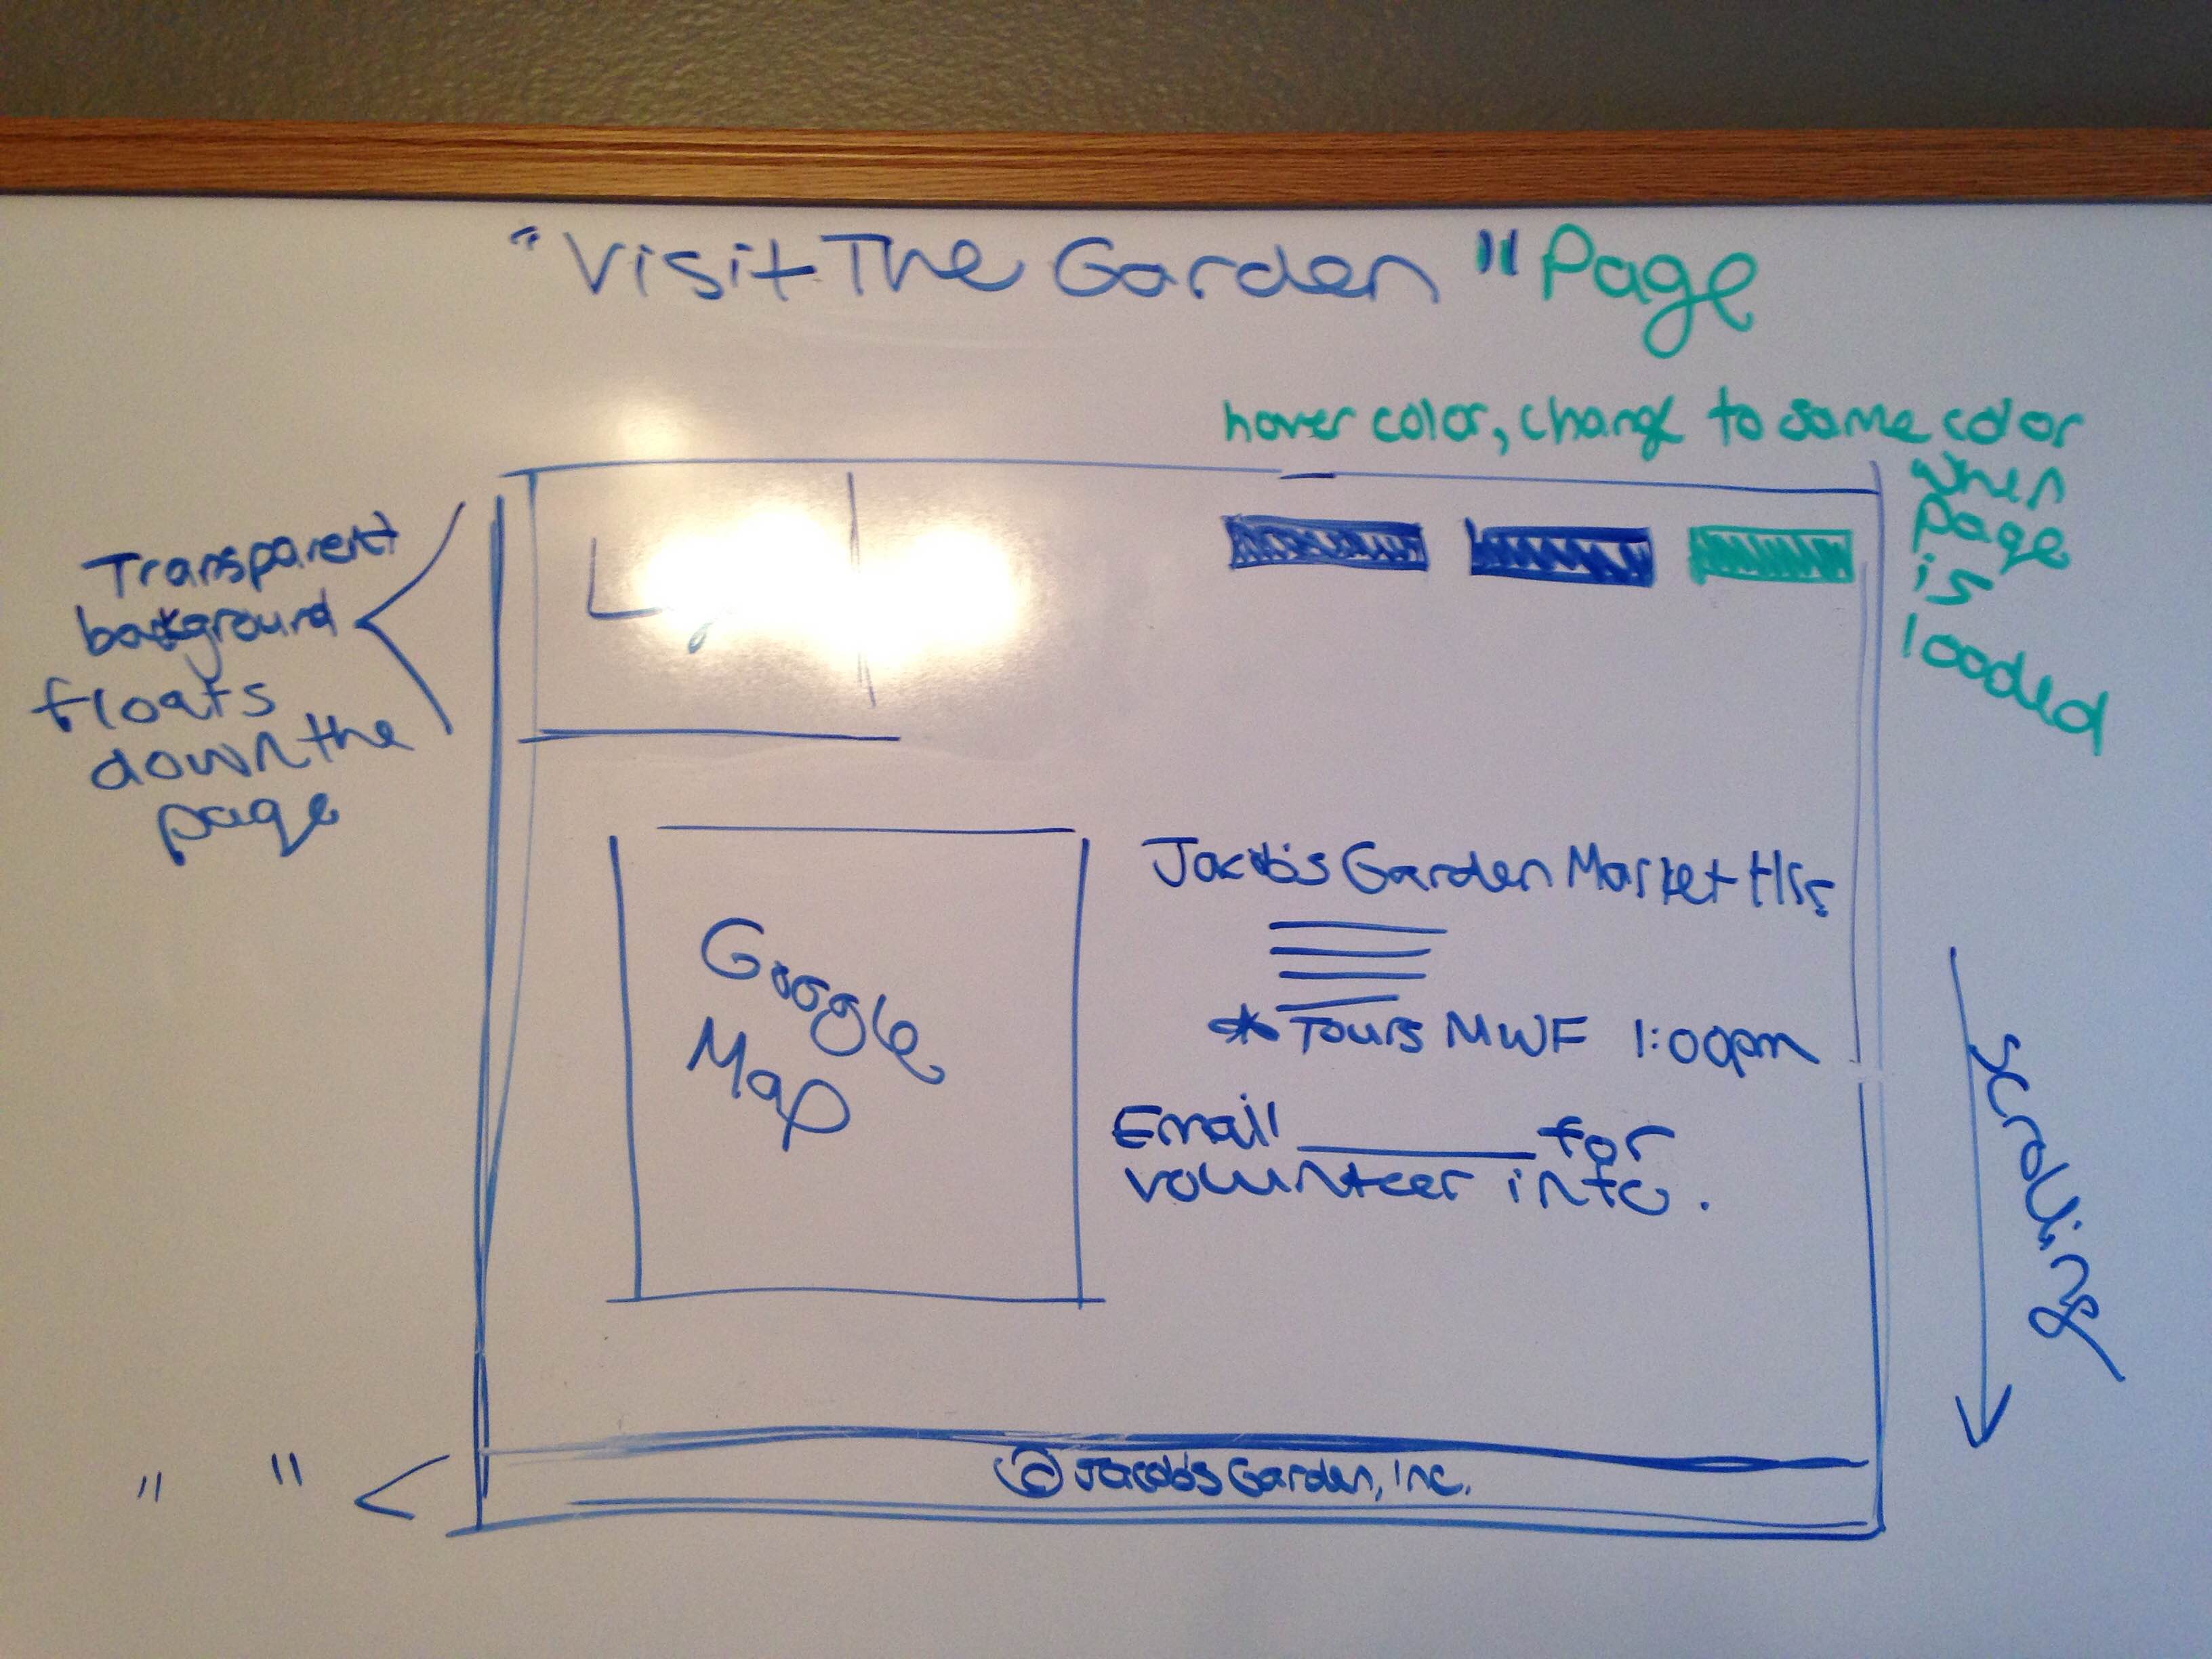 "Visit The Garden" Page
hover color, change to same color
when
page
is
loaded
Transparent
background
floats
down the
page
Jacob's Garden Market Hrs
Google
Map
* Tours MWF 1:00pm
Email ______ for
volunteer info.
scrolling
" "
© Jacob's Garden, Inc.